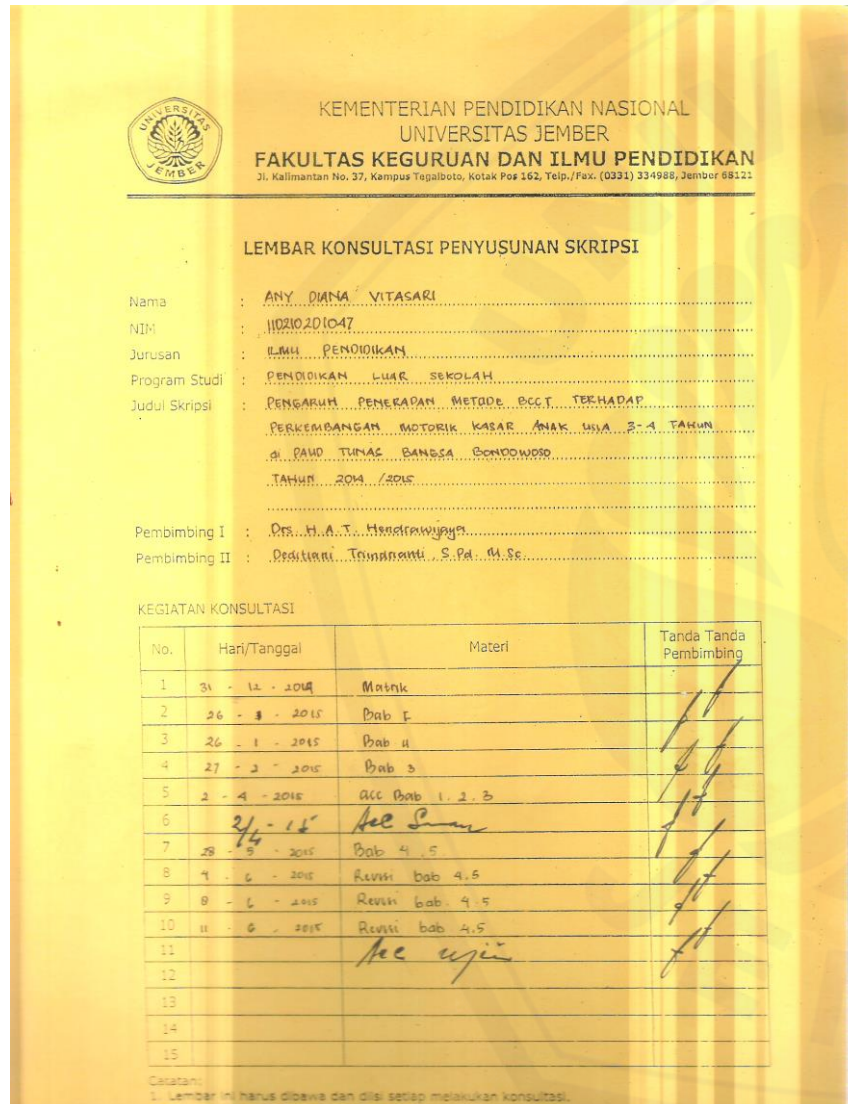 UNIVERSITAS
JEMBER
KEMENTERIAN PENDIDIKAN NASIONAL
UNIVERSITAS JEMBER
FAKULTAS KEGURUAN DAN ILMU PENDIDIKAN
Jl. Kalimantan No. 37, Kampus Tegalboto, Kotak Pos 162, Telp./Fax. (0331) 334988, Jember 68121
LEMBAR KONSULTASI PENYUSUNAN SKRIPSI
Nama : ANY DIANA VITASARI
NIM : 110210201047
Jurusan : ILMU PENDIDIKAN
Program Studi : PENDIDIKAN LUAR SEKOLAH
Judul Skripsi : PENGARUH PENERAPAN METODE BCCT TERHADAP
PERKEMBANGAN MOTORIK KASAR ANAK USIA 3-4 TAHUN
di PAUD TUNAS BANGSA BONDOWOSO
TAHUN 2014 /2015
Pembimbing I : Drs. H. A.T. Hendrawijaya
Pembimbing II : Deditiani , S.Pd. M.Sc.
KEGIATAN KONSULTASI
No. Hari/Tanggal Materi Tanda Tanda Pembimbing
1 31 - 12 - 2014 Matrik
2 26 - - 2015 Bab I
3 26 - 1 - 2015 Bab II
4 27 - 2 - 2015 Bab 3
5 2 - 4 - 2015 acc Bab 1. 2. 3
6 2/4 - 15 Acc
7 28 - 5 - 2015 Bab 4 . 5
8 4 - 6 - 2015 Revisi bab 4.5
9 8 - 6 - 2015 Revisi bab 4.5
10 11 - 6 - 2015 Revisi bab 4.5
11 Acc ujian
12
13
14
15
Catatan:
1. Lembar ini harus dibawa dan diisi setiap melakukan konsultasi.